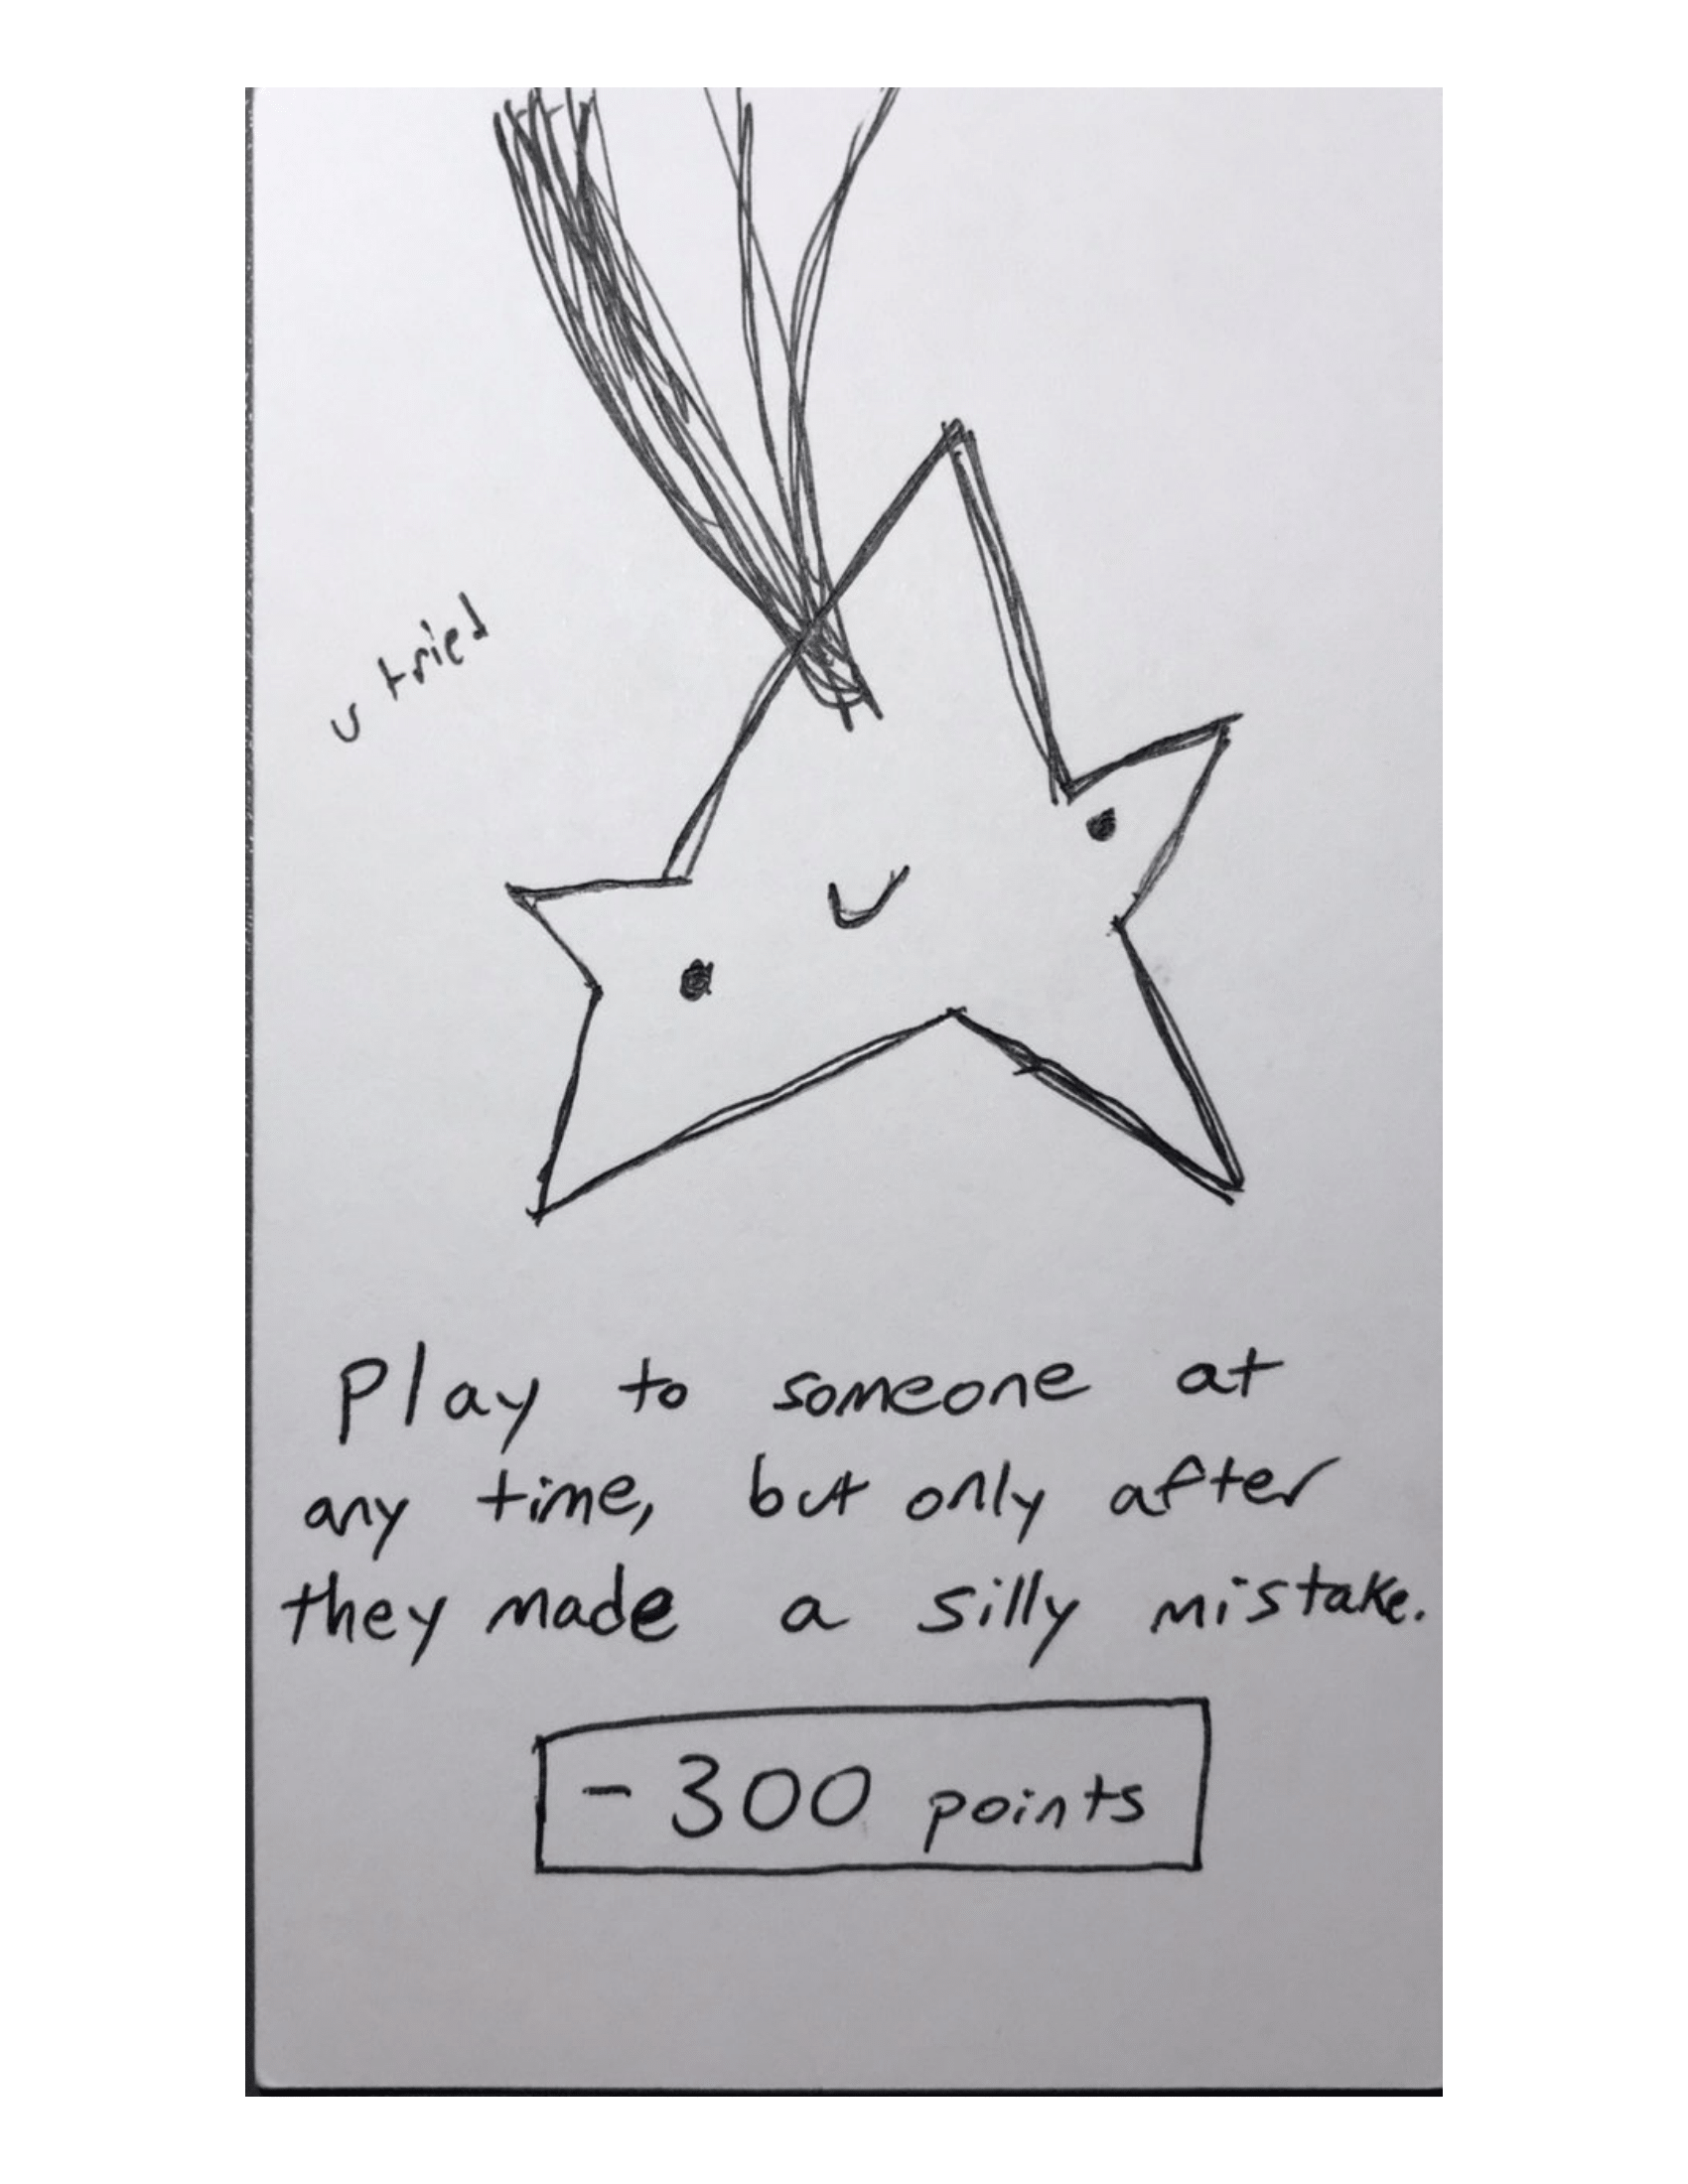 u tried
Play to someone at
any time, but only after
they made a silly mistake.
- 300 points